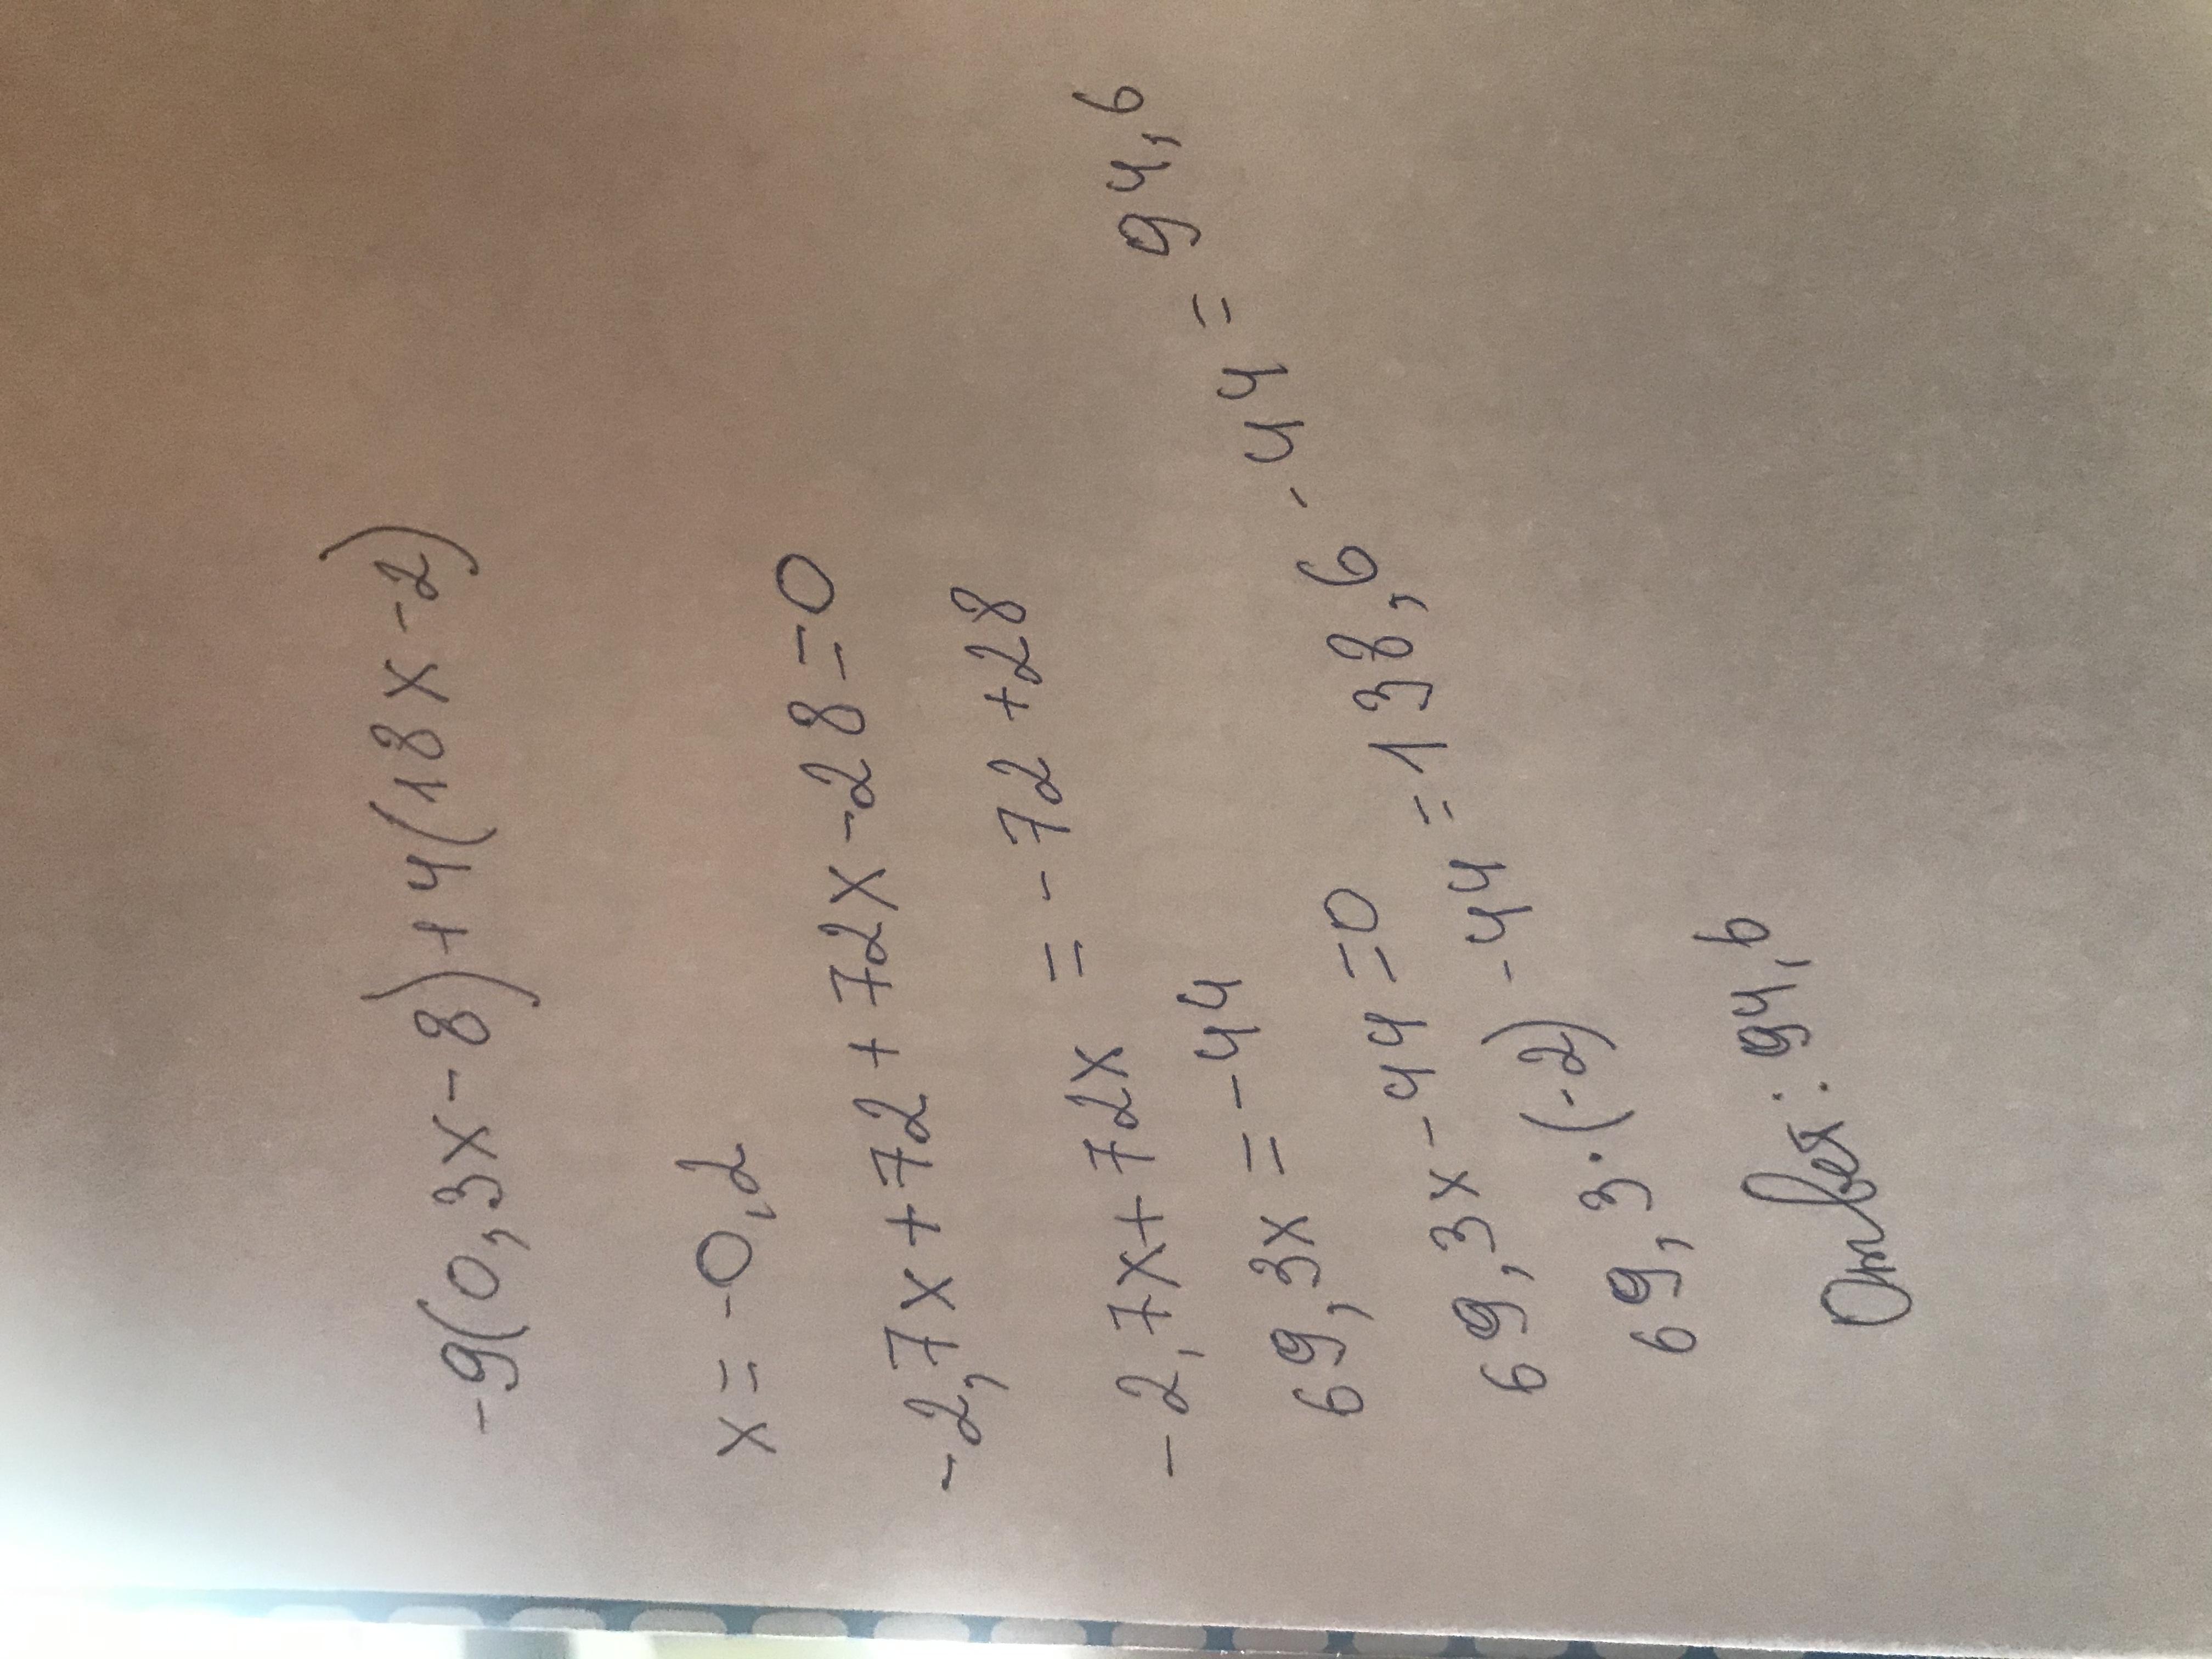 -9(0,3x-8)+4(18x-2)
x=-0,2
-2,7x+72+72x-28=0
-2,7x+72x=-72+28
69,3x=-44
69,3x-44=0
69,3·(-2)-44=138,6-44=94,6
Ответ: 94,6